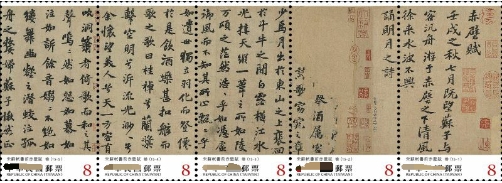 赤壁賦
壬戌之秋七月既望蘇子與
客泛舟游于赤壁之下清風
徐來水波不興
舉酒屬客
誦明月之詩
歌窈窕之章
少焉月出於東山之上裴回
於斗牛之間白露橫江水
光接天縱一葦之所如陵
萬頃之茫然浩浩乎如馮虛
御風而不知其所止飄飄乎
如遺世獨立羽化而登僊
於是飲酒樂甚扣舷而
歌之歌曰桂棹兮蘭槳
擊空明兮泝流光渺渺兮
余懷望美人兮天一方客有
吹洞簫者倚歌而和之其
聲嗚嗚然如怨如慕如泣
如訴餘音嫋嫋不絕如
縷舞幽壑之潛蛟泣孤
舟之嫠婦蘇子愀然正
宋蘇軾書前赤壁賦 卷
郵票
REPUBLIC OF CHINA (TAIWAN)
8
宋蘇軾書前赤壁賦 卷
郵票
REPUBLIC OF CHINA (TAIWAN)
8
宋蘇軾書前赤壁賦 卷
郵票
REPUBLIC OF CHINA (TAIWAN)
8
宋蘇軾書前赤壁賦 卷
郵票
REPUBLIC OF CHINA (TAIWAN)
8
宋蘇軾書前赤壁賦 卷
郵票
REPUBLIC OF CHINA (TAIWAN)
8